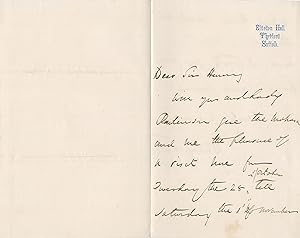 Elveden Hall,
Thetford,
Suffolk.
Dear Sir Henry
Will you and Lady
Rawlinson give the
and me the pleasure of
a visit here from
October
Tuesday the 28, till
Saturday the 1st of November